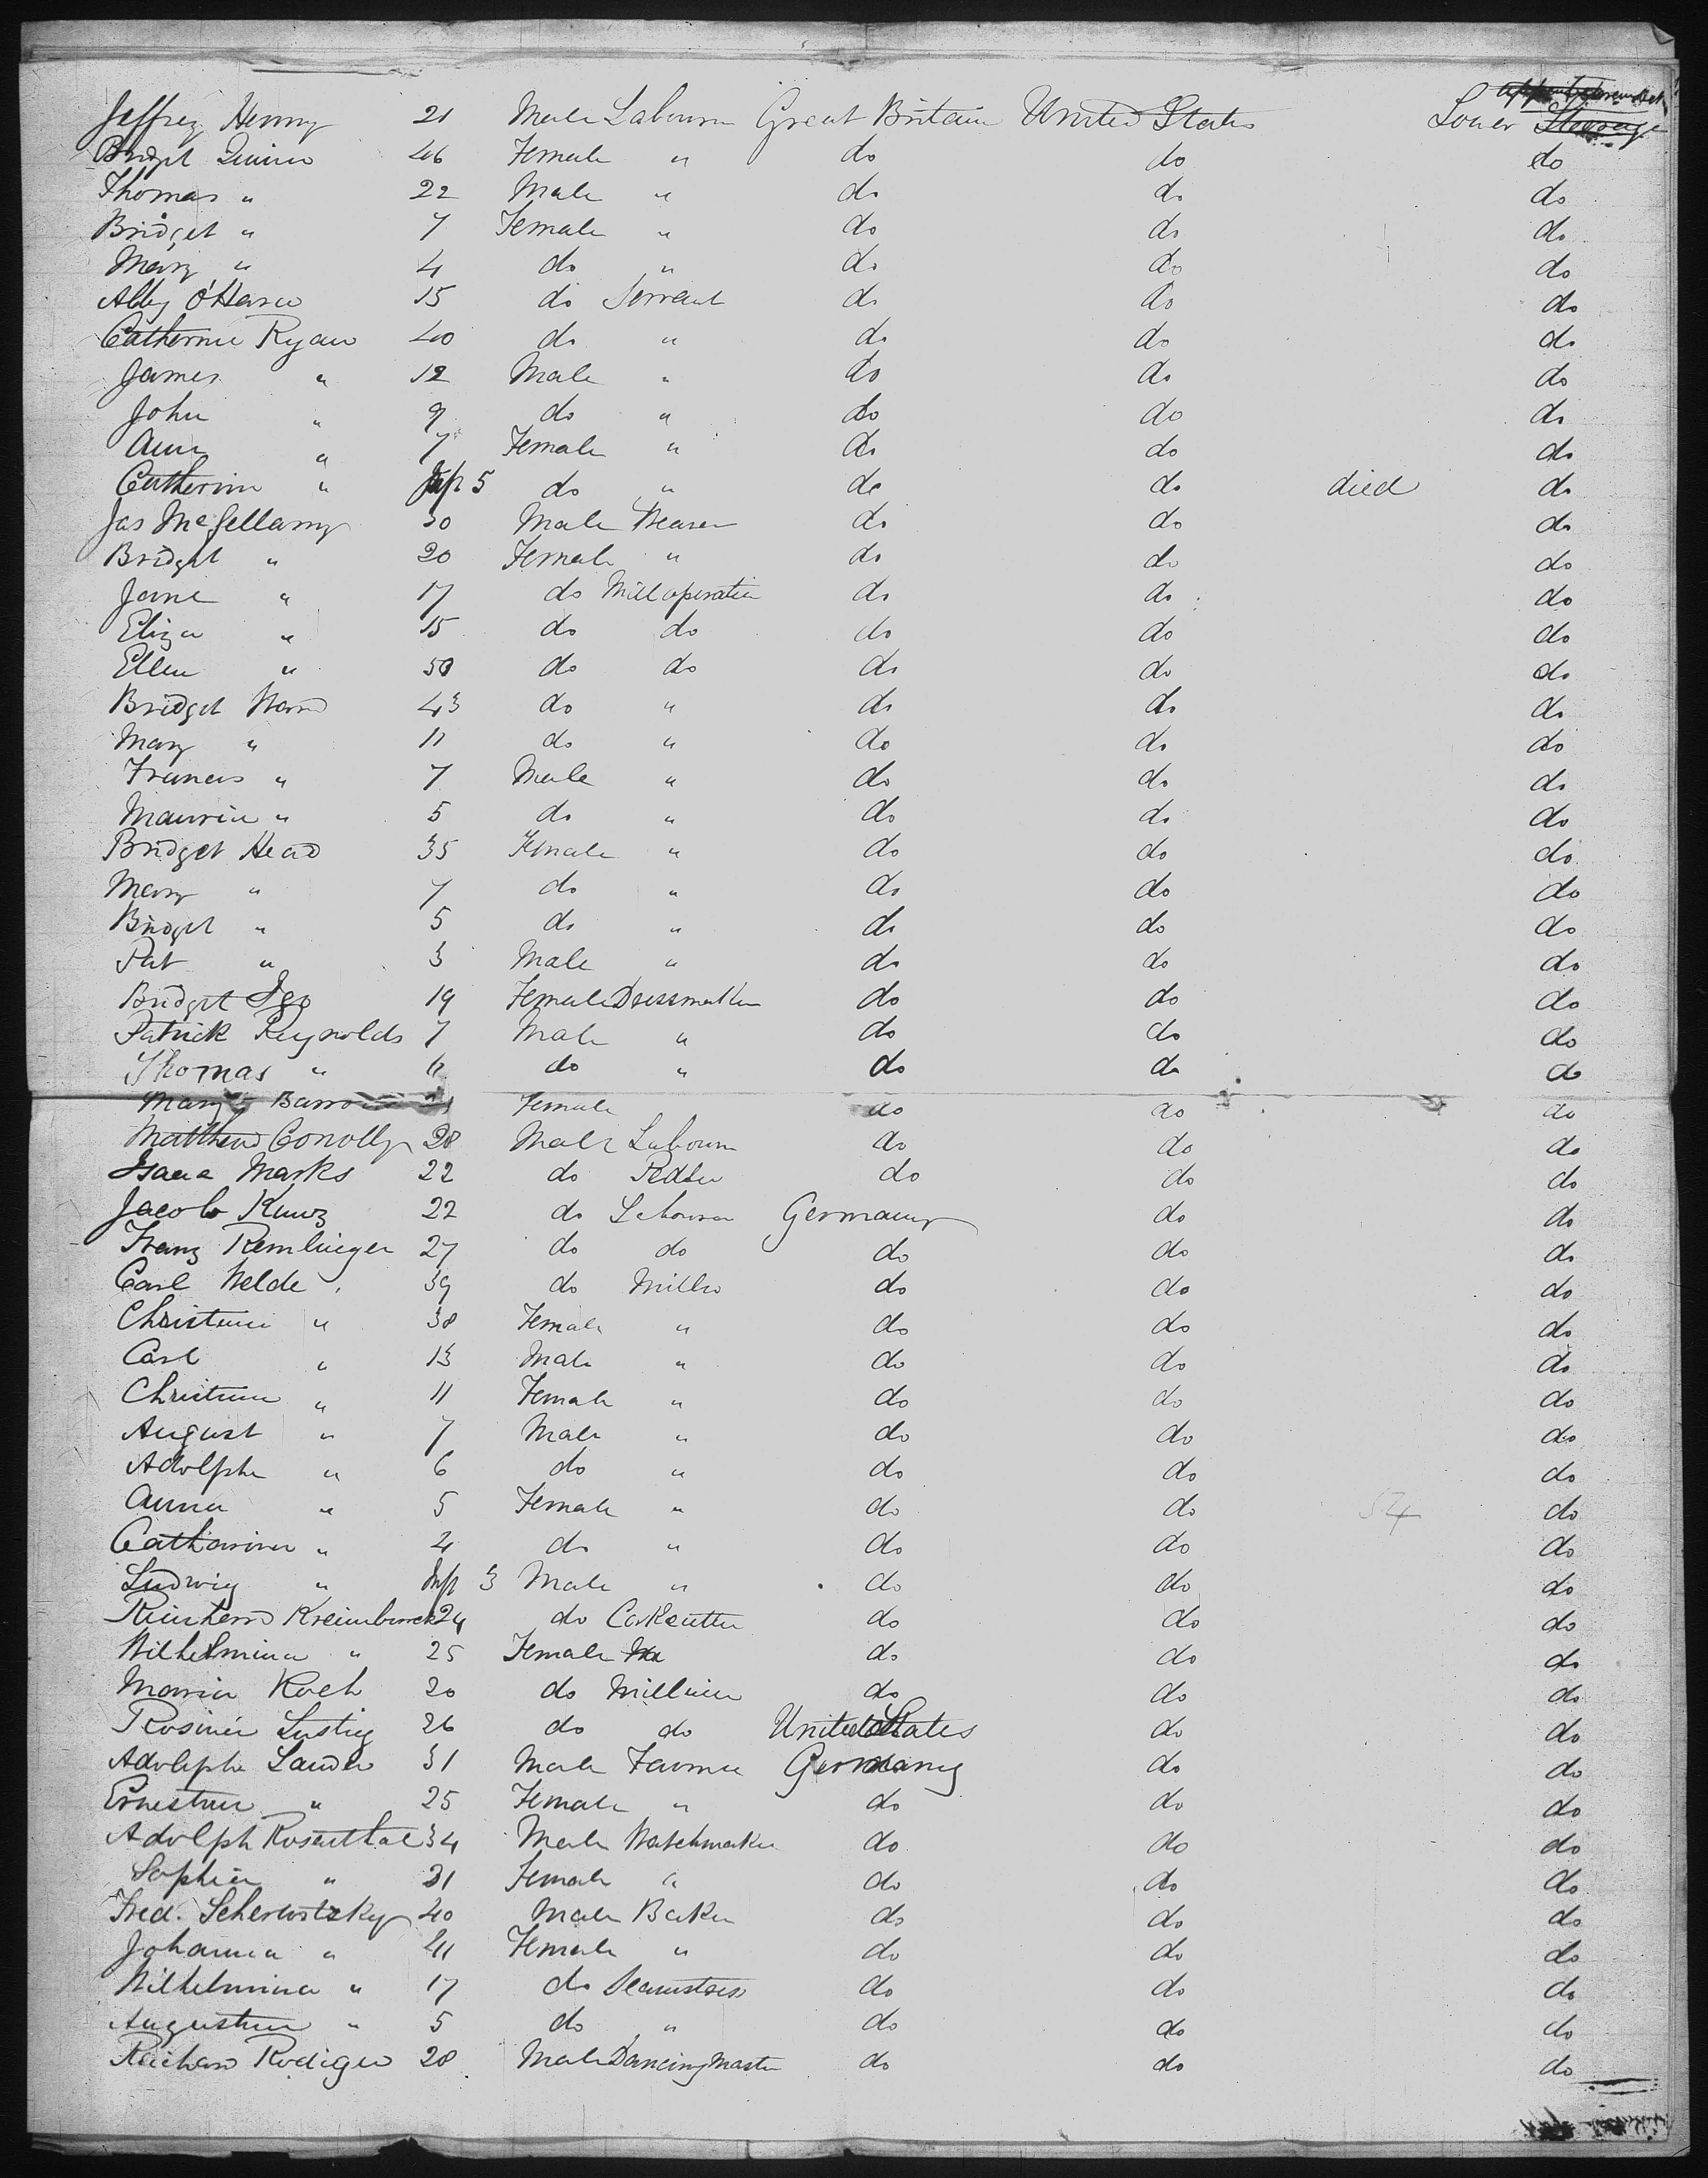 Jeffrey Henry 21 Male Labourer Great Britain United States Lower Steerage
Bridget Quinn 46 Female " do do do
Thomas " 22 Male " do do do
Bridget " 7 Female " do do do
Mary " 4 do " do do do
Abby O'Hara 15 do Servant do do do
Catherine Ryan 40 do " do do do
James " 12 Male " do do do
John " 9 do " do do do
Ann " 7 Female " do do do
Catherine " Inft 5 do " do do died do
Jas McGellamy 30 Male Weaver do do do
Bridget " 20 Female " do do do
Jane " 17 do Mill operative do do do
Eliza " 15 do do do do do
Ellen " 50 do do do do do
Bridget Ward 43 do " do do do
Mary " 11 do " do do do
Francis " 7 Male " do do do
Maurice " 5 do " do do do
Bridget Head 35 Female " do do do
Mary " 7 do " do do do
Bridget " 5 do " do do do
Pat " 3 Male " do do do
Bridget Igo 19 Female Dressmaker do do do
Patrick Reynolds 7 Male " do do do
Thomas " 6 do " do do do
Mary Barro Female do do do
Matthew Conolly 28 Male Labourer do do do
Isaac Marks 22 do Pedler do do do
Jacob Kunz 22 do Labourer Germany do do
Franz Remlinger 27 do do do do do
Carl Welde 39 do Miller do do do
Christine " 38 Female " do do do
Carl " 13 Male " do do do
Christine " 11 Female " do do do
August " 7 Male " do do do
Adolphe " 6 do " do do do
Anna " 5 Female " do do 54 do
Catharina " 4 do " do do do
Ludwig " Inft 3 Male " do do do
Reinhard 24 do Corkcutter do do do
Wilhelmina " 25 Female do do do
Maria Koch 20 do Milliner do do do
Rosine Lustig 26 do do United States do do
Adolphe Sander 31 Male Farmer Germany do do
Ernestine " 25 Female " do do do
Adolph Rosenthal 34 Male Watchmaker do do do
Sophia " 21 Female " do do do
Fred. 40 Male Baker do do do
Johanna " 41 Female " do do do
Wilhelmina " 17 do Seamstress do do do
Augustine " 5 do " do do do
Richard Rodiger 28 Male Dancing Master do do do